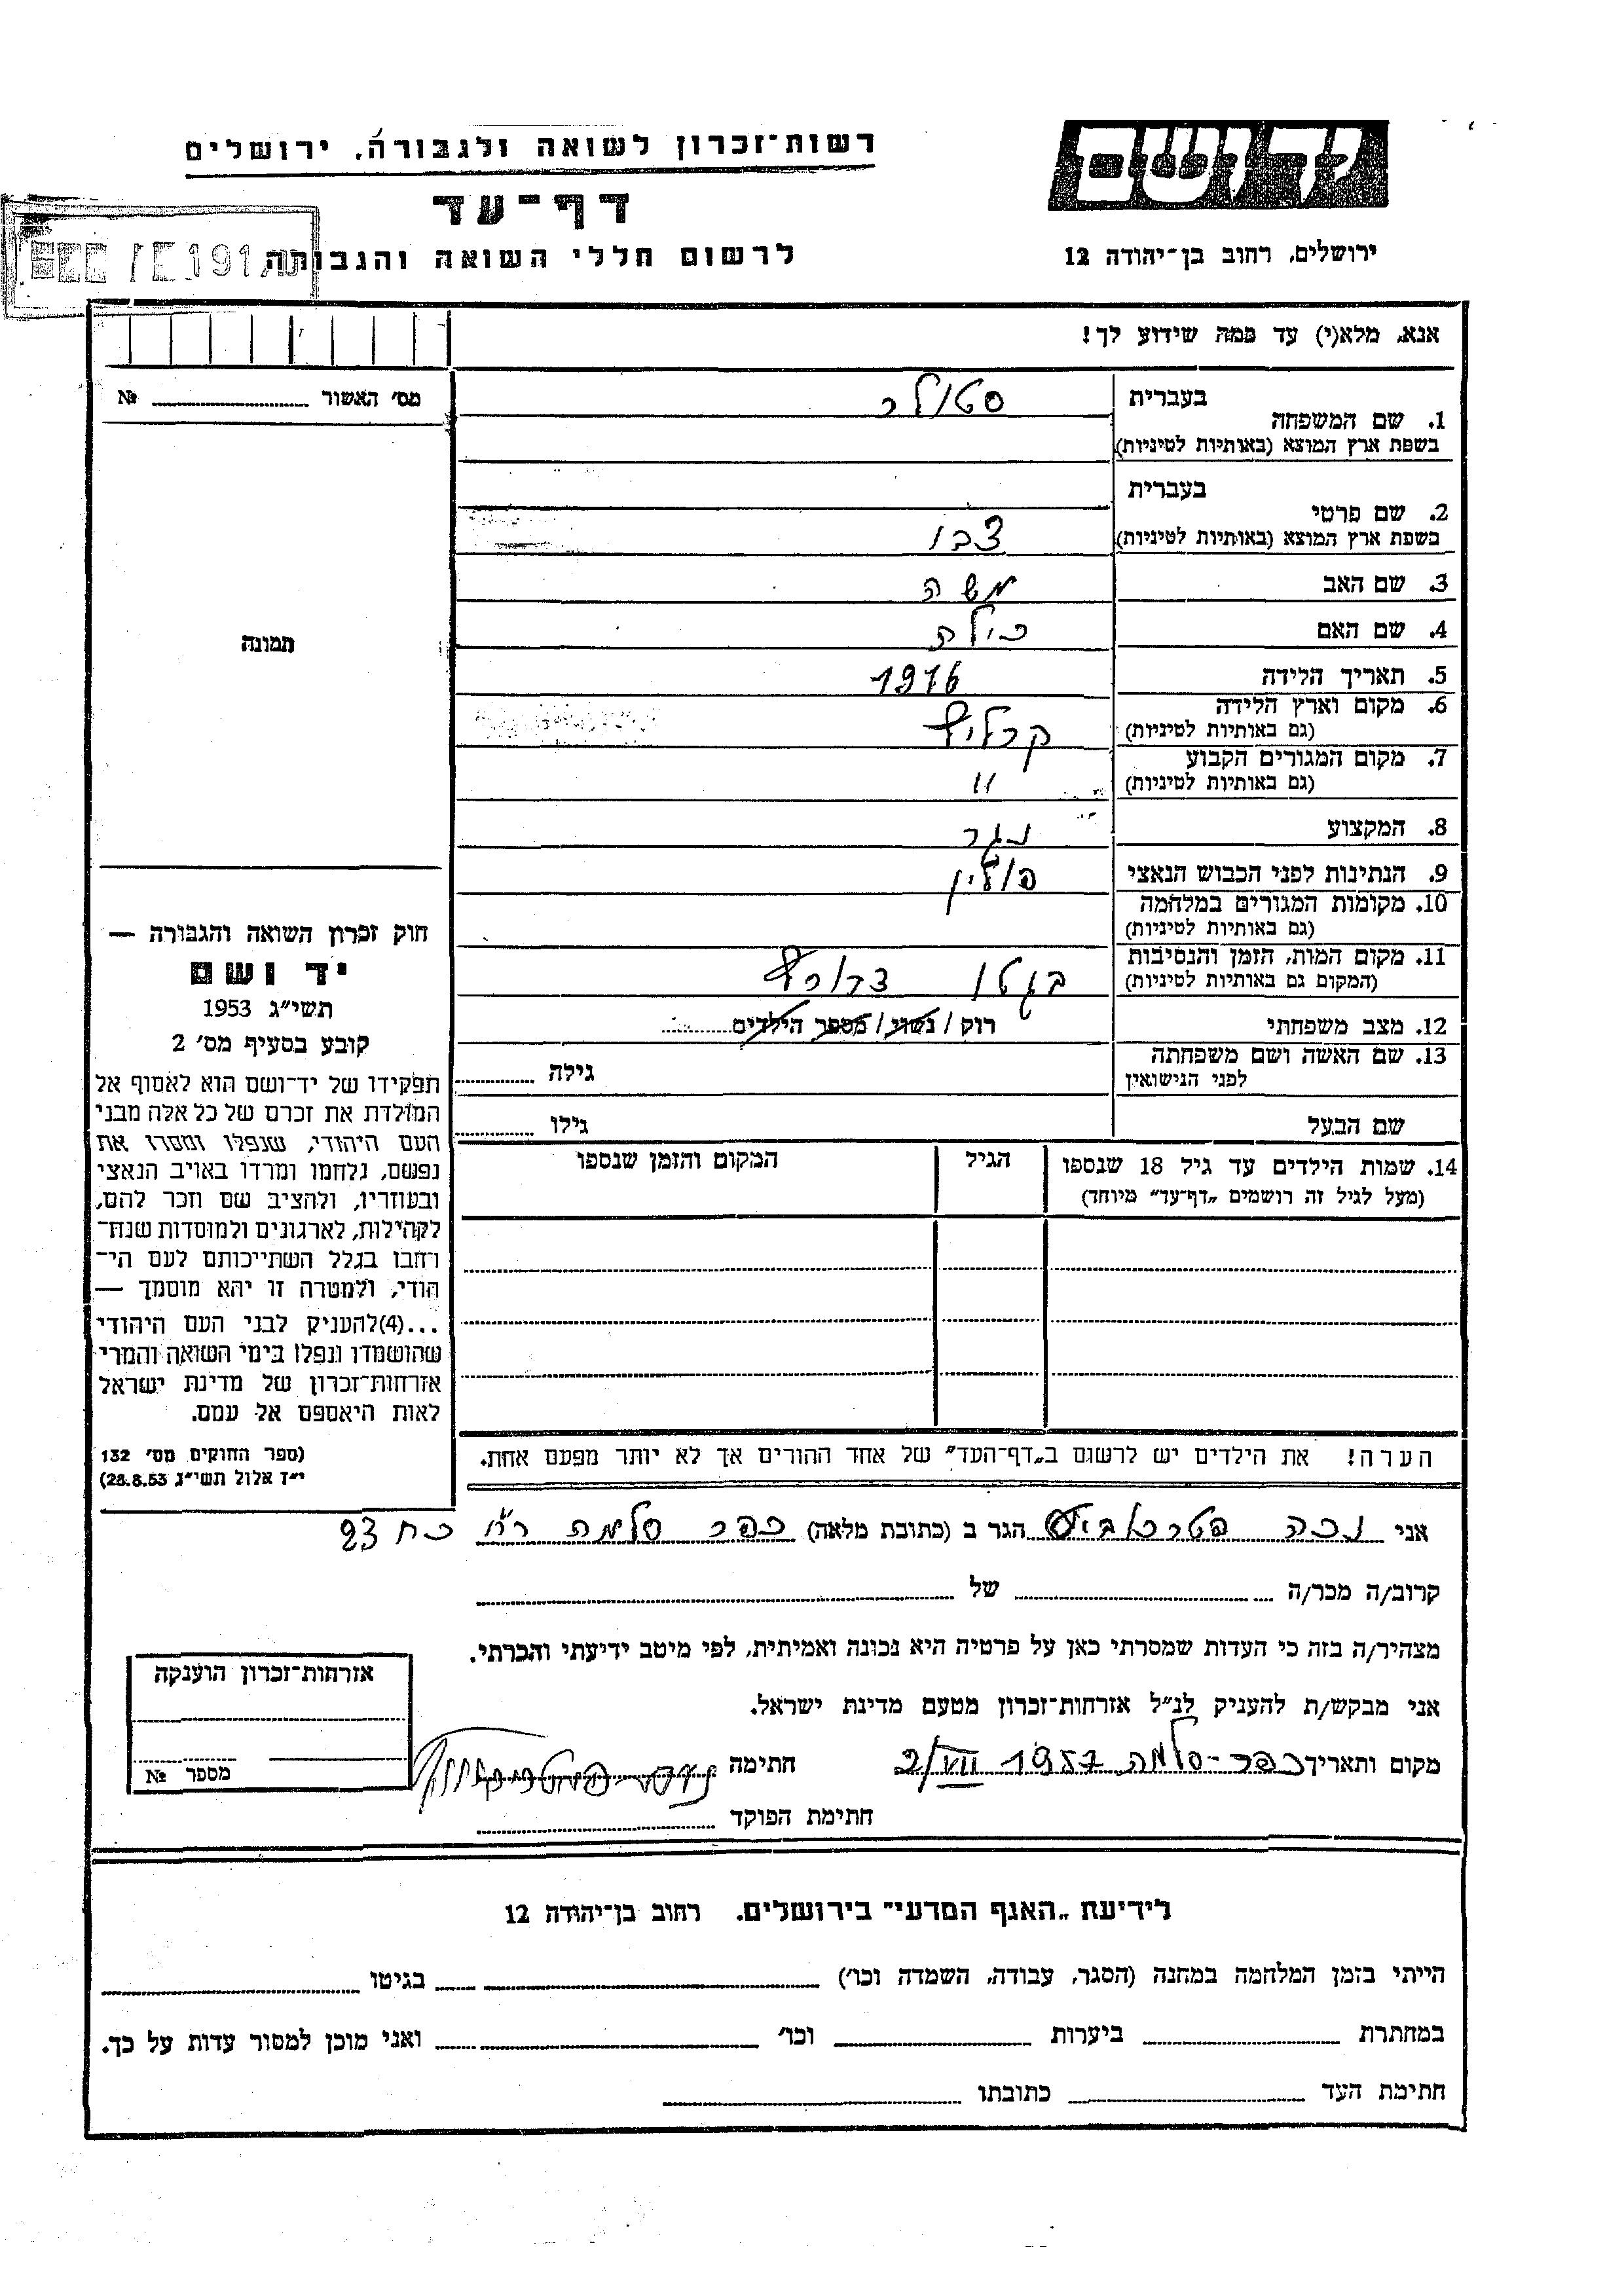 יד ושם
ירושלים, רחוב בן־יהודה 12
רשות־זכרון לשואה ולגבורה, ירושלים
דף־עד
לרשום חללי השואה והגבורה
אנא, מלא(י) עד כמה שידוע לך!
מס' האשור № 
1. שם המשפחה
בעברית סטולר
בשפת ארץ המוצא (באותיות לטיניות)
2. שם פרטי
בעברית
בשפת ארץ המוצא (באותיות לטיניות)
3. שם האב משה
4. שם האם
5. תאריך הלידה 1916
6. מקום וארץ הלידה
(גם באותיות לטיניות)
7. מקום המגורים הקבוע "
(גם באותיות לטיניות)
8. המקצוע נגר
9. הנתינות לפני הכבוש הנאצי פולין
10. מקומות המגורים במלחמה
(גם באותיות לטיניות)
11. מקום המות, הזמן והנסיבות בגטו
(המקום גם באותיות לטיניות)
12. מצב משפחתי רוק / נשוי / מספר הילדים
13. שם האשה ושם משפחתה לפני הנישואין גילה
שם הבעל גילו
14. שמות הילדים עד גיל 18 שנספו
(מעל לגיל זה רושמים „דף־עד" מיוחד)
הגיל
המקום והזמן שנספו
הערה! את הילדים יש לרשום ב„דף־העד" של אחד ההורים אך לא יותר מפעם אחת.
תמונה
חוק זכרון השואה והגבורה —
יד ושם
תשי"ג 1953
קובע בסעיף מס' 2
תפקידו של יד־ושם הוא לאסוף אל
המולדת את זכרם של כל אלה מבני
העם היהודי, שנפלו ומסרו את
נפשם, נלחמו ומרדו באויב הנאצי
ובעוזריו, ולהציב שם וזכר להם,
לקהילות, לארגונים ולמוסדות שנח־
רחבו בגלל השתייכותם לעם הי־
הודי, ולמטרה זו יהא מוסמך —
...(4)להעניק לבני העם היהודי
שהושמדו ונפלו בימי השואה והמרי
אזרחות־זכרון של מדינת ישראל
לאות היאספם אל עמם.
(ספר החוקים מס' 132
י"ז אלול תשי"ג 28.8.53)
אני הגר ב (כתובת מלאה) כפר סלמה רח' 23
קרוב/ה מכר/ה של
מצהיר/ה בזה כי העדות שמסרתי כאן על פרטיה היא נכונה ואמיתית, לפי מיטב ידיעתי והכרתי.
אני מבקש/ת להעניק לנ"ל אזרחות־זכרון מטעם מדינת ישראל.
מקום ותאריך כפר־סלמה 1957 2/VII חתימה
חתימת הפוקד
אזרחות־זכרון הוענקה
מספר №
לידיעת „האגף המדעי" בירושלים. רחוב בן־יהודה 12
הייתי בזמן המלחמה במחנה (הסגר, עבודה, השמדה וכו') בגיטו
במחתרת ביערות וכו' ואני מוכן למסור עדות על כך.
חתימת העד כתובתו